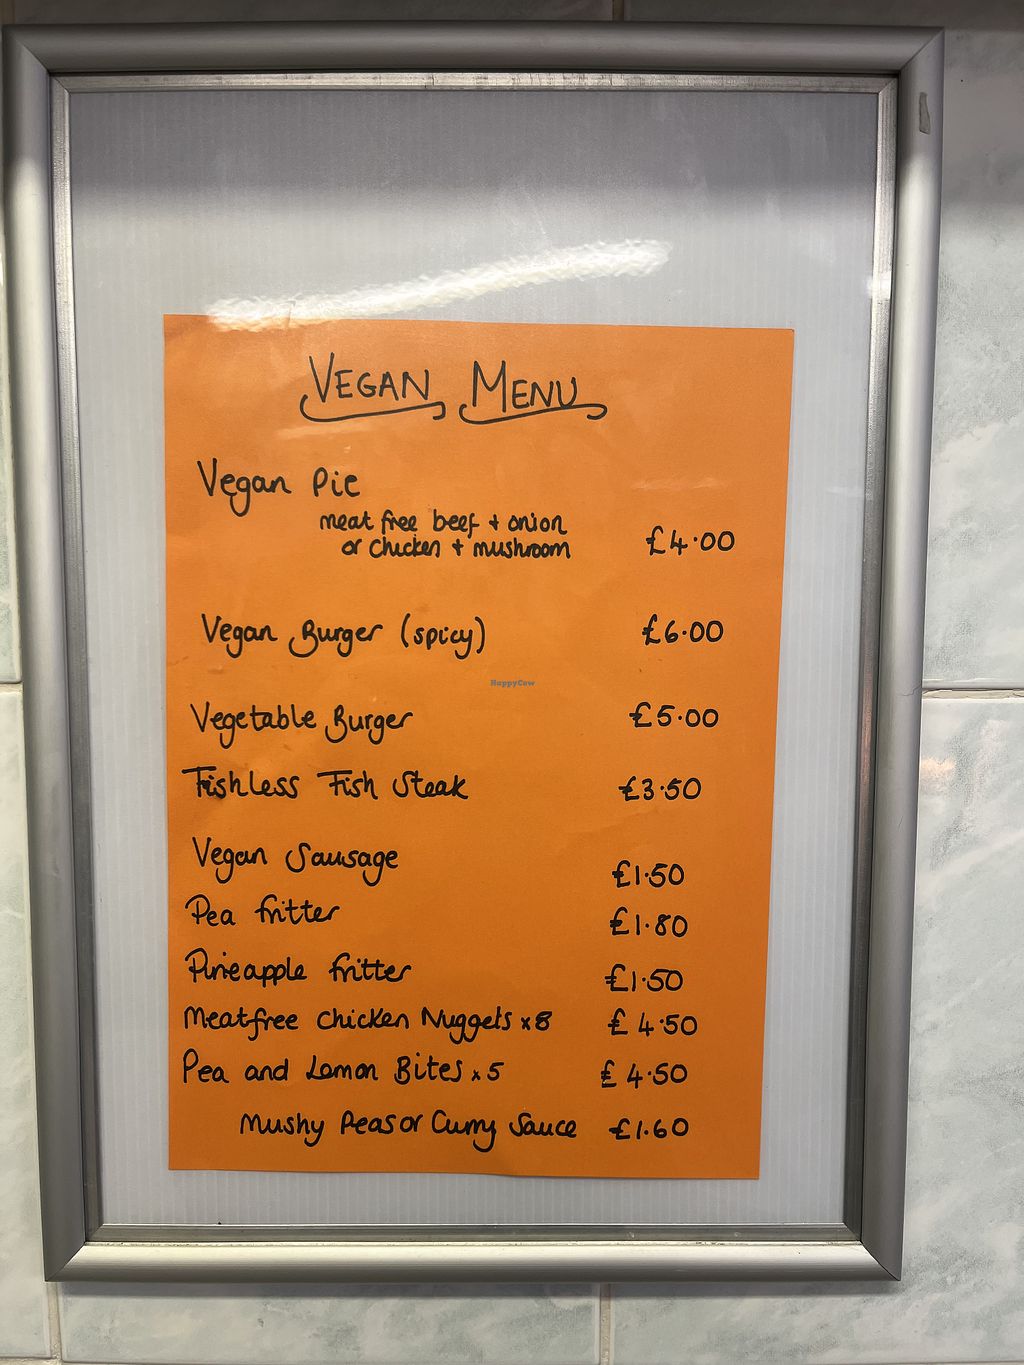 VEGAN MENU
Vegan Pie
meat free beef + onion
or chicken + mushroom £4.00
Vegan Burger (spicy) £6.00
HappyCow
Vegetable Burger £5.00
Fishless Fish Steak £3.50
Vegan Sausage £1.50
Pea fritter £1.80
Pineapple fritter £1.50
Meatfree Chicken Nuggets x8 £4.50
Pea and Lemon Bites x5 £4.50
Mushy Peas or Curry Sauce £1.60